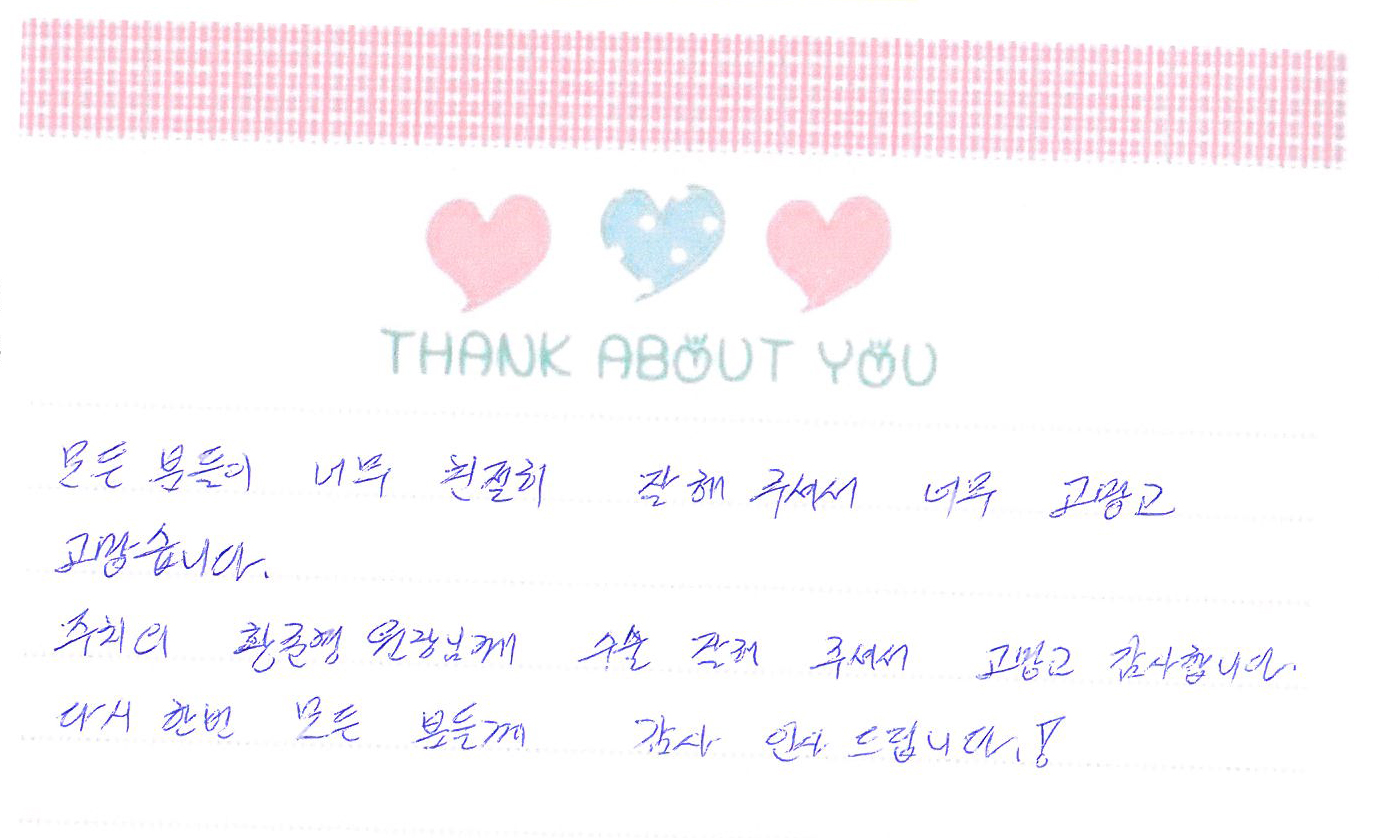 THANK ABOUT YOU
모든 분들이 너무 친절히 잘해 주셔서 너무 고맙고
고맙습니다.
주치의 원장님께 수술 잘해 주셔서 고맙고 감사합니다.
다시 한번 모든 분들께 감사 인사 드립니다.!